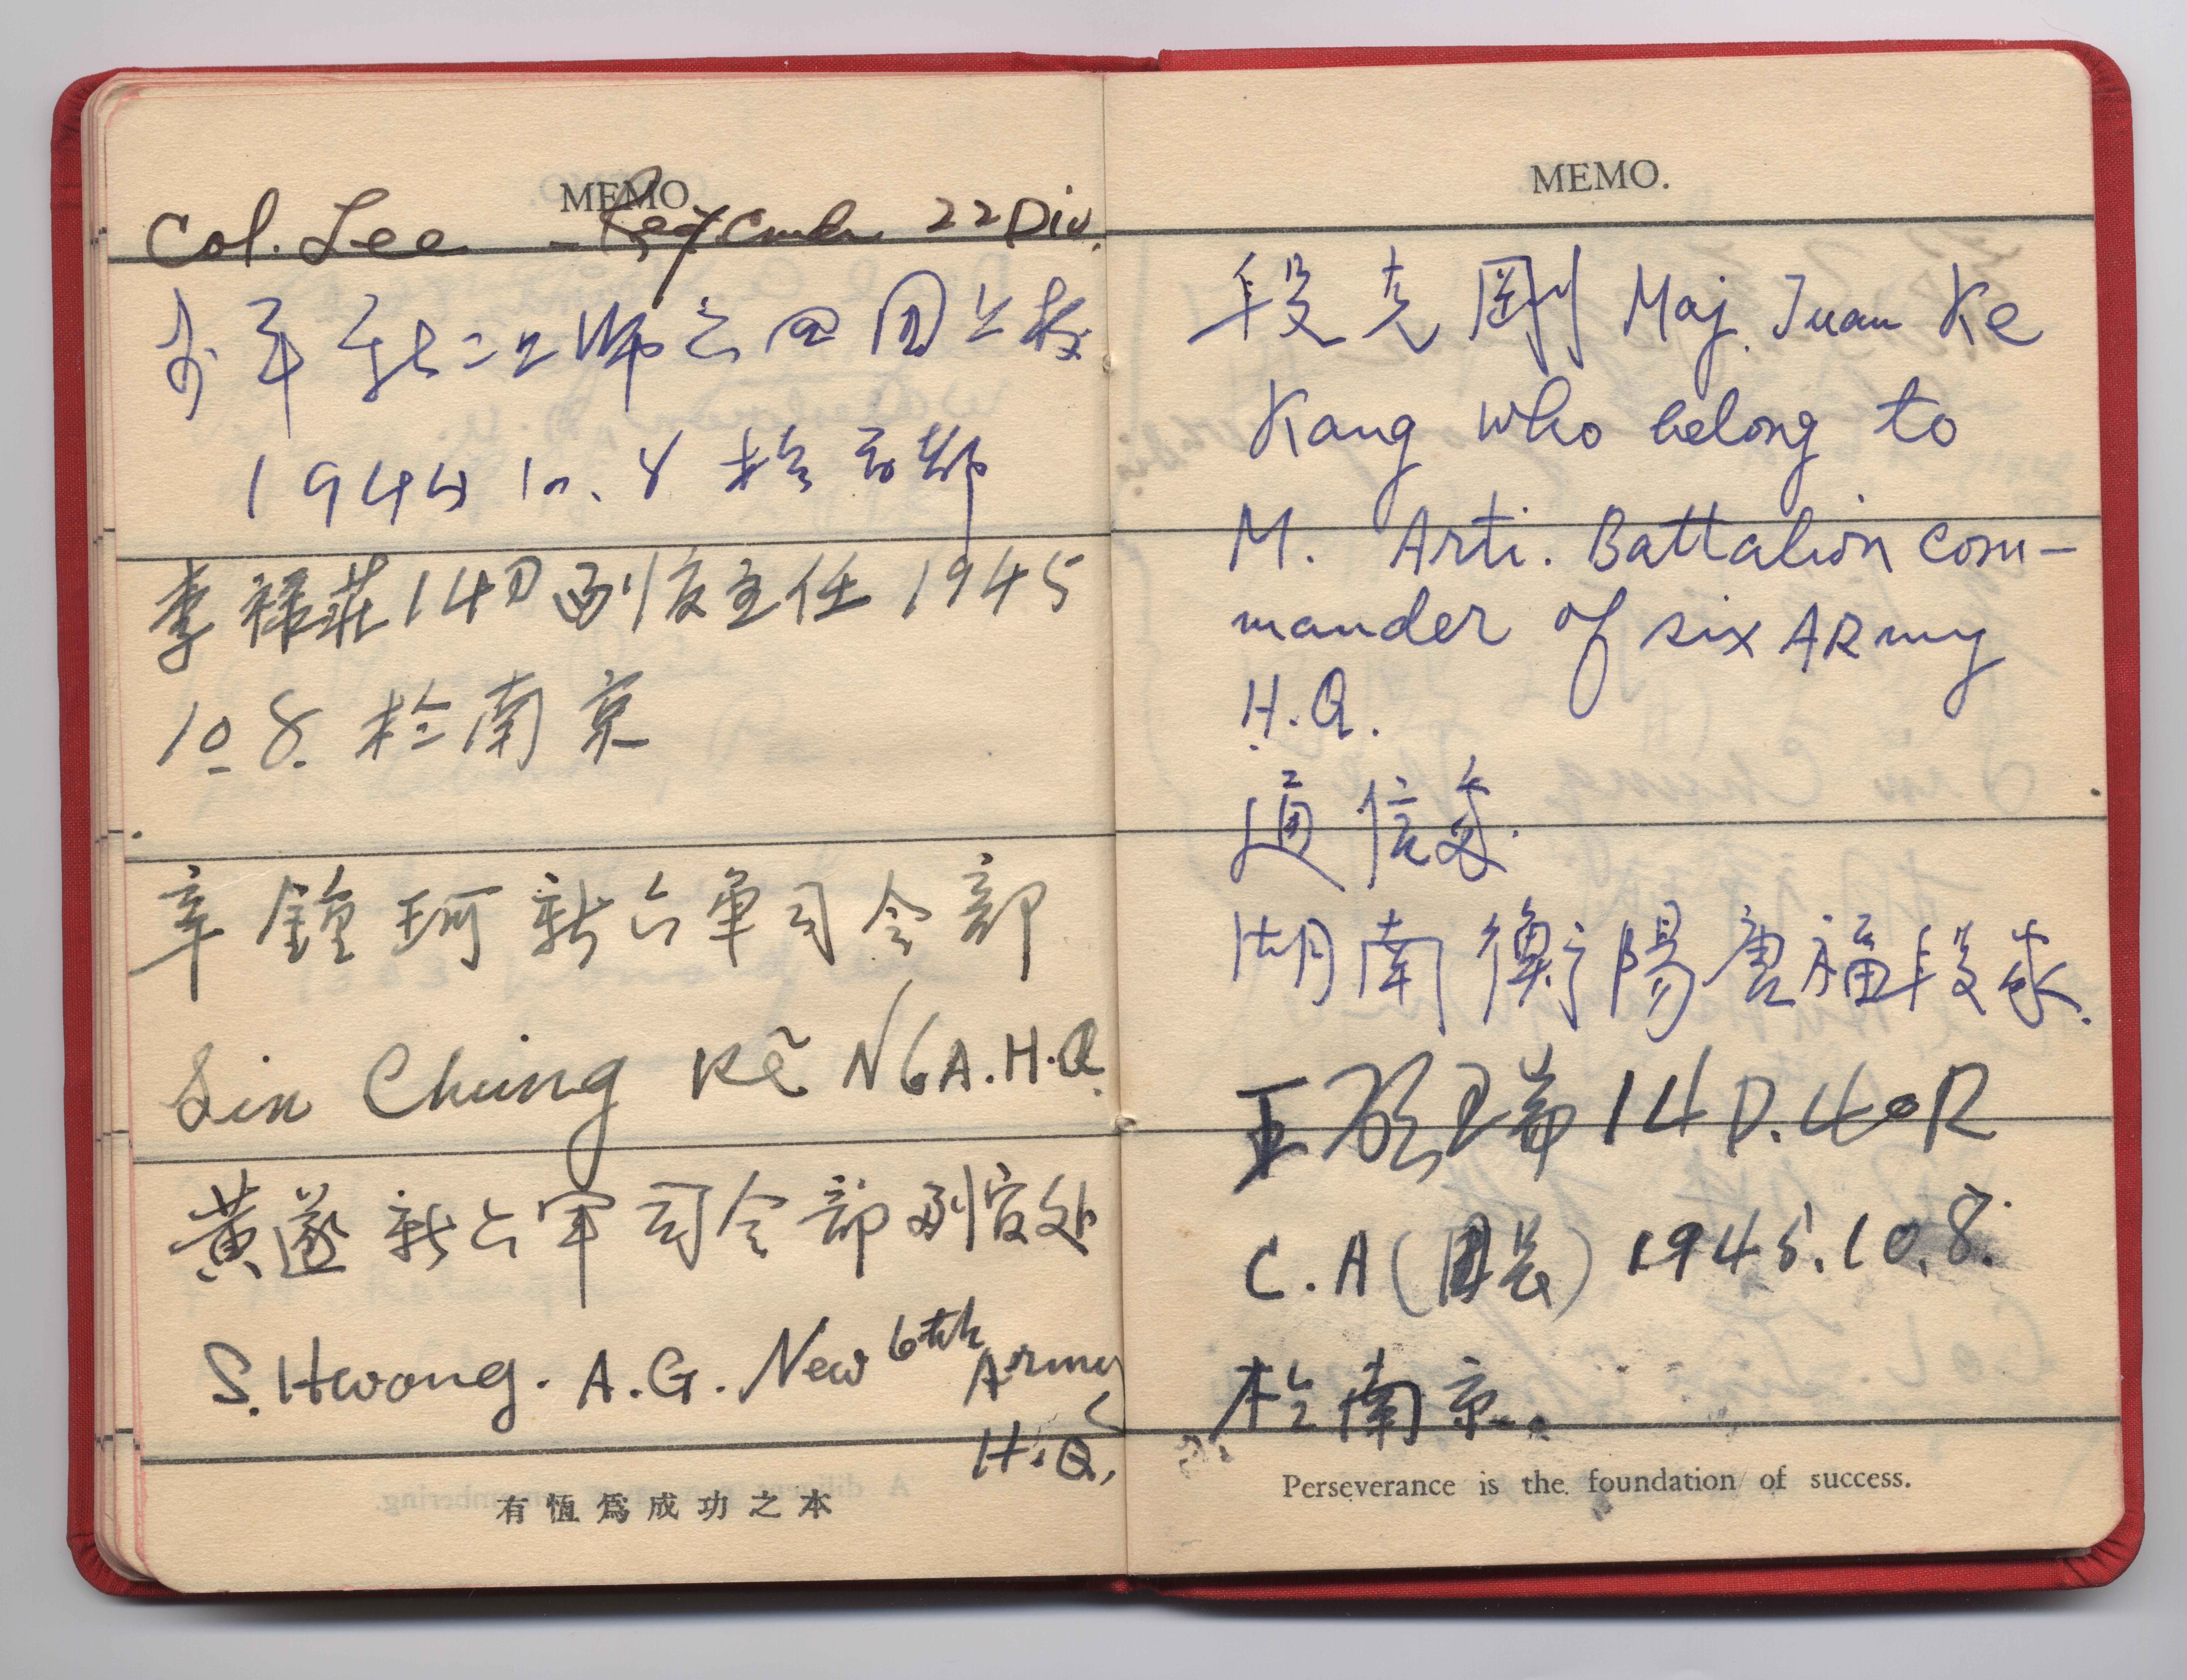 MEMO.
Col. Lee - Regt Cmdr 22 Div.
新二二师六四团上校
1944 10. 8 於京都
李禄莊 14D 副官主任 1945
10. 8. 於南京
辛鐘珂 新六軍司令部
Sin Chung Ke N6A.H.Q.
黃遂 新六军司令部副官处
S. Hwong. A.G. New 6th Army
H.Q.
有恆爲成功之本
MEMO.
段克剛 Maj. Tuan Ke
Kang who belong to
M. Arti. Battalion com-
mander of six ARmy
H.Q.
通信處.
湖南衡陽唐福段家.
王啟瑞 14 D. 40R
C.A (團長) 1945.10.8.
於南京.
Perseverance is the foundation of success.